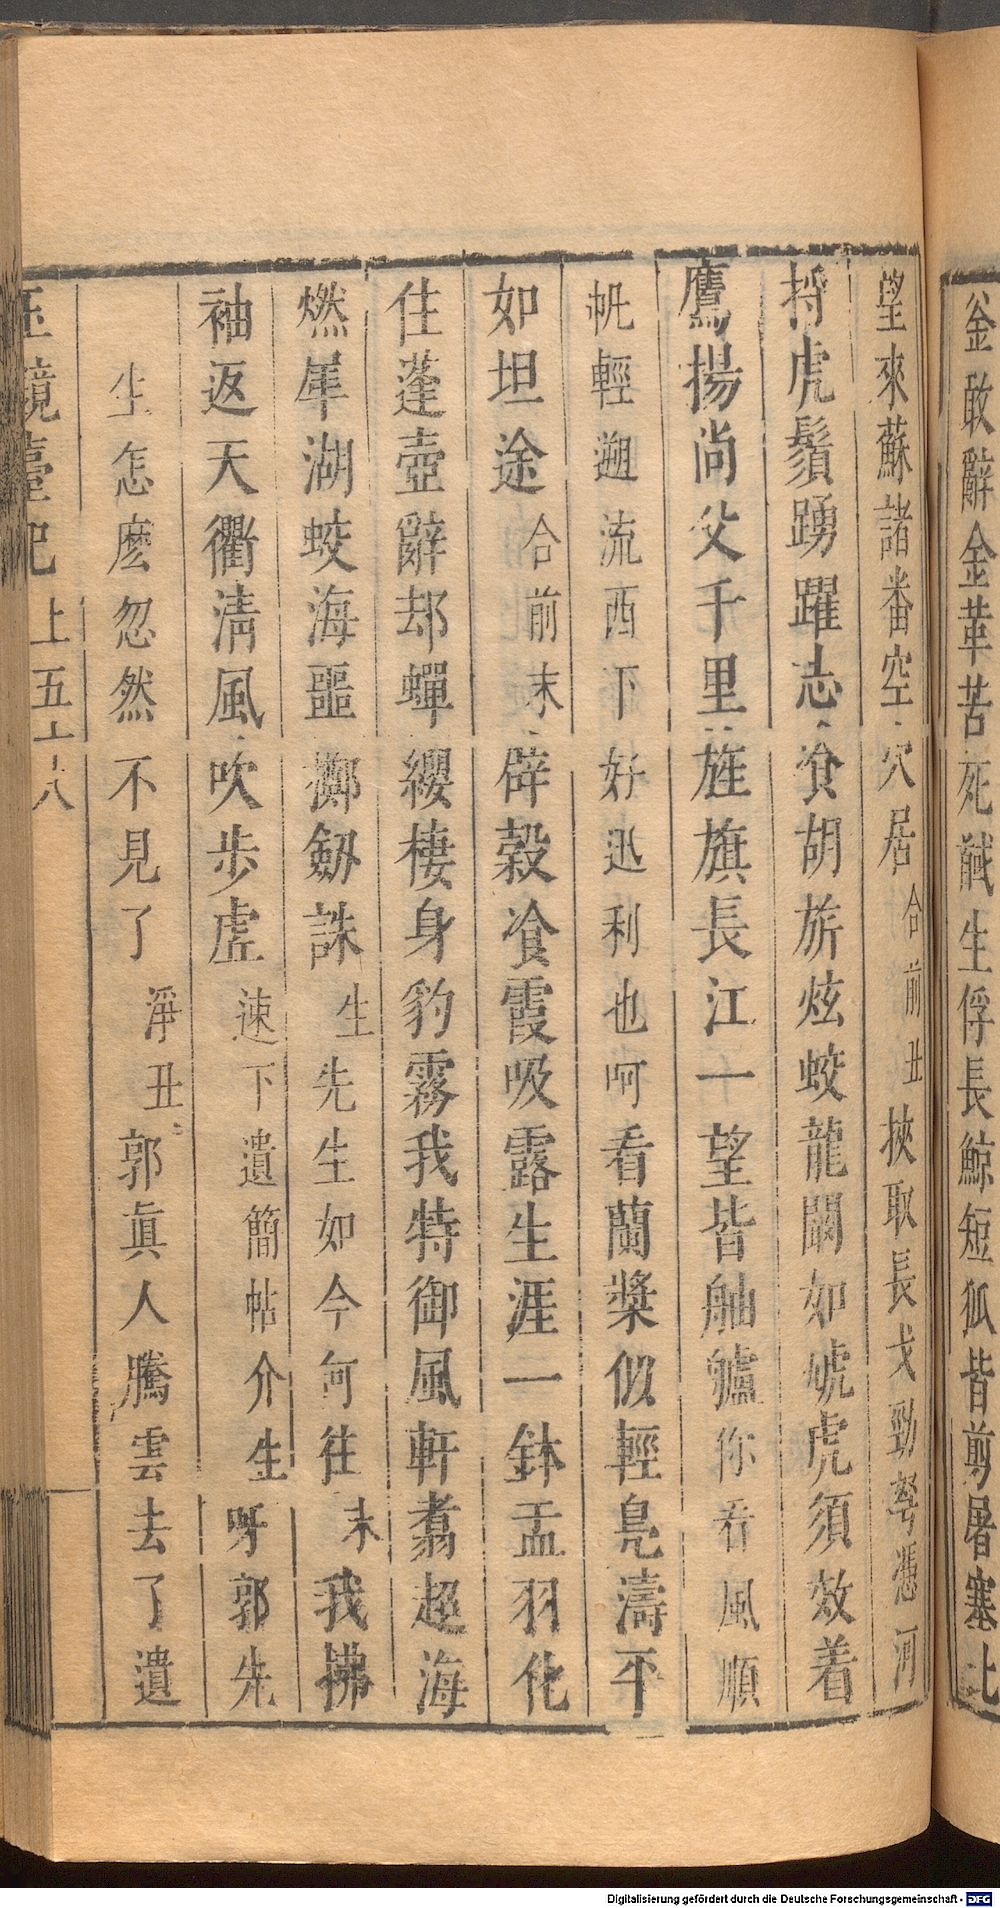 釡敢辭金革苦死馘生俘長鯨短狐皆剪屠塞北
望來蘇諸番空穴居合前丑挾取長戈勁弩憑河
捋虎鬚踴躍志飡胡旂炫蛟龍闞如虓虎須效着
鷹揚尚父千里旌旗長江一望皆舳艫你看風順
帆輕遡流西下好迅利也呵看蘭槳似輕鳧濤平
如坦途合前末辟穀飡霞吸露生涯一鉢盂羽化
住蓬壺辭却蟬纓棲身豹霧我特御風軒翥超海
燃犀湖蛟海噩擲劔誅生先生如今何徃末我拂
袖返天衢清風吹步虛速下遺簡帖介生呀郭先
生怎麽忽然不見了淨丑郭眞人騰雲去了遺
玉鏡臺記上五十八
Digitalisierung gefördert durch die Deutsche Forschungsgemeinschaft - DFG